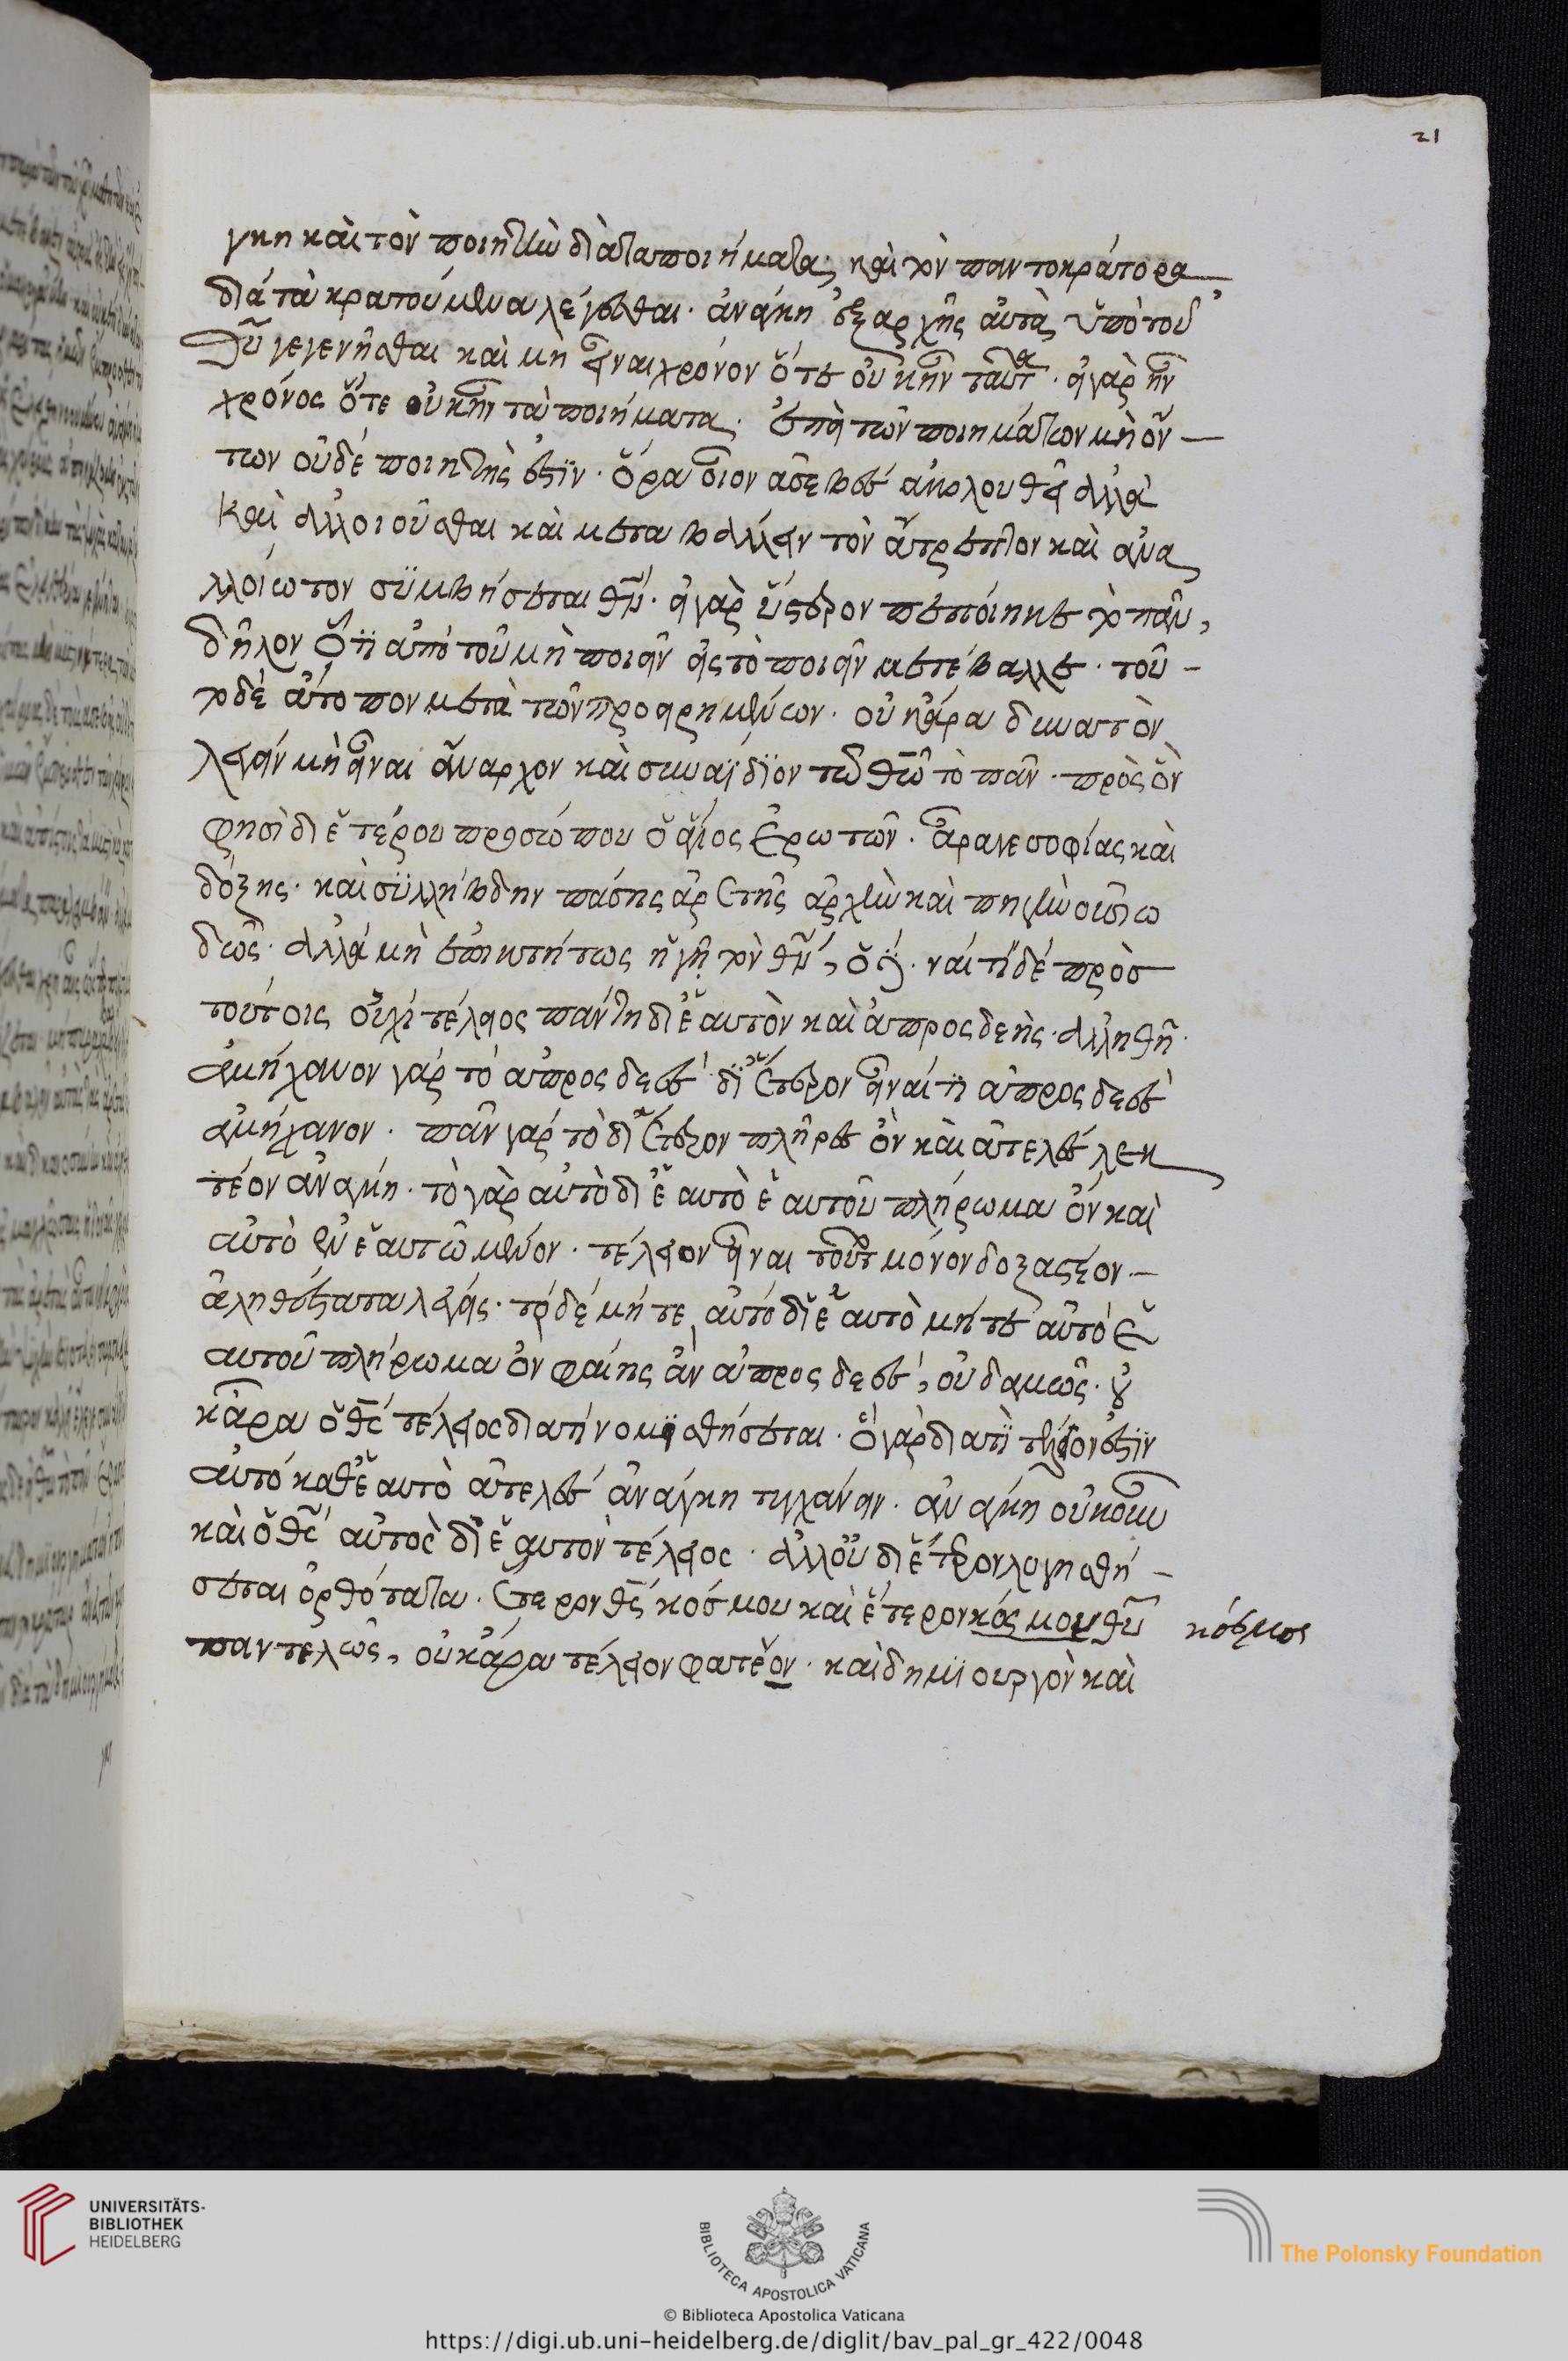 21
γκη καὶ τὸν ποιητὴν διὰ τα ποιήματα, καὶ τὸν παντοκράτορα
διά τὰ κρατούμενα λέγεσθαι. ἀνάγκη ἐξαρχῆς αὐτὰ ὑπὸ τοῦ
θῦ γεγενῆσθαι καὶ μὴ εἶναι χρόνον ὅτε οὐκ ἦν ταῦτα. εἰ γὰρ ἦν
χρόνος ὅτε οὐκ ἦν τὰ ποιήματα. ἐπεὶ τῶν ποιημάτων μὴ ὄν–
των οὐδέ ποιητὴς ἐστὶν. ὅρα οἷον ἀσεβὲς ἀκολουθεῖ ἀλλὰ
καὶ ἀλλοιοῦσθαι καὶ μεταβάλλειν τὸν ἄτρεπτον καὶ ἀνα
λλοίωτον συμβήσεται θν̅. εἰ γὰρ ὕστερον πεποίηκε τὸ πᾶν,
δῆλον ὅτι ἀπὸ τοῦ μὴ ποιεῖν εἰς τὸ ποιεῖν μετέβαλλε. τοῦ–
το δὲ ἄτοπον μετὰ τῶν προειρημένων. οὐκ ἄρα δυνατὸν
λέγειν μὴ εἶναι ἄναρχον καὶ συναΐδιον τῶ θῶ τὸ πᾶν. πρὸς ὃν
φησὶ δι ἑτέρου προσώπου ὁ ἅγιος ἐρωτῶν. ἆρα γε σοφίας καὶ
δόξης. καὶ συλλήβδην πάσης ἀρετῆς ἀρχὴν καὶ πηγὴν οὐσιω
δῶς. ἀλλὰ μὴ ἐπικτήτως ἡγῆ τὸν θν̅, ὁ . ναί τί δέ πρὸσ
τούτοις οὐχὶ τέλειος πάντη δι ἑαυτὸν καὶ ἀπροσδεὴς. ἀληθῆ.
ἀμήχανον γάρ τό ἀπροσδεὲς δι ἕτερον εἶναί τι ἀπροσδεὲς
ἀμήχανον. πᾶν γάρ τὸ δι ἕτερον πλῆρες ὂν καὶ ἀτελὲς λεκ
τέον ἀνάγκη. τὸ γὰρ αὐτὸ δι ἑαυτὸ ἑαυτοῦ πλήρωμα ὂν καὶ
αὐτὸ ἐν ἑαυτῶ μένον. τέλειον εἶναι τοῦτο μόνον δοξαστέον.–
ἀληθέστατα λέγεις. τὸ δέ μήτε αὐτό δι ἑαυτὸ μήτε αὐτό ἑ
αυτοῦ πλήρωμα ὂν φαίης ἂν ἀπροσδεὲς, οὐδαμῶς. οὐ
κἄρα ὁ θς̅ τέλειος διατὶ νομισθήσεται. ὅ γὰρ διά τι τέλειον ἐστὶν
αὐτό καθ ἑαυτὸ ἀτελὲς ἀνάγκη τυγχάνειν. ἀνάγκη οὐκοῦν
καὶ ὁ θς̅ αὐτὸς δι ἑαυτὸν τέλειος. ἀλλ οὐ δι ἕτερον λογισθή–
σεται ὀρθότατα. ἕτερον θς̅ κόσμου καὶ ἕτερον κόσμου θῦ
παντελῶς, οὐκ ἄρα τέλειον φατέον. καὶ δημιουργὸν καὶ
κόσμος
UNIVERSITÄTS-
BIBLIOTHEK
HEIDELBERG
BIBLIOTECA APOSTOLICA VATICANA
The Polonsky Foundation
© Biblioteca Apostolica Vaticana
https://digi.ub.uni-heidelberg.de/diglit/bav_pal_gr_422/0048